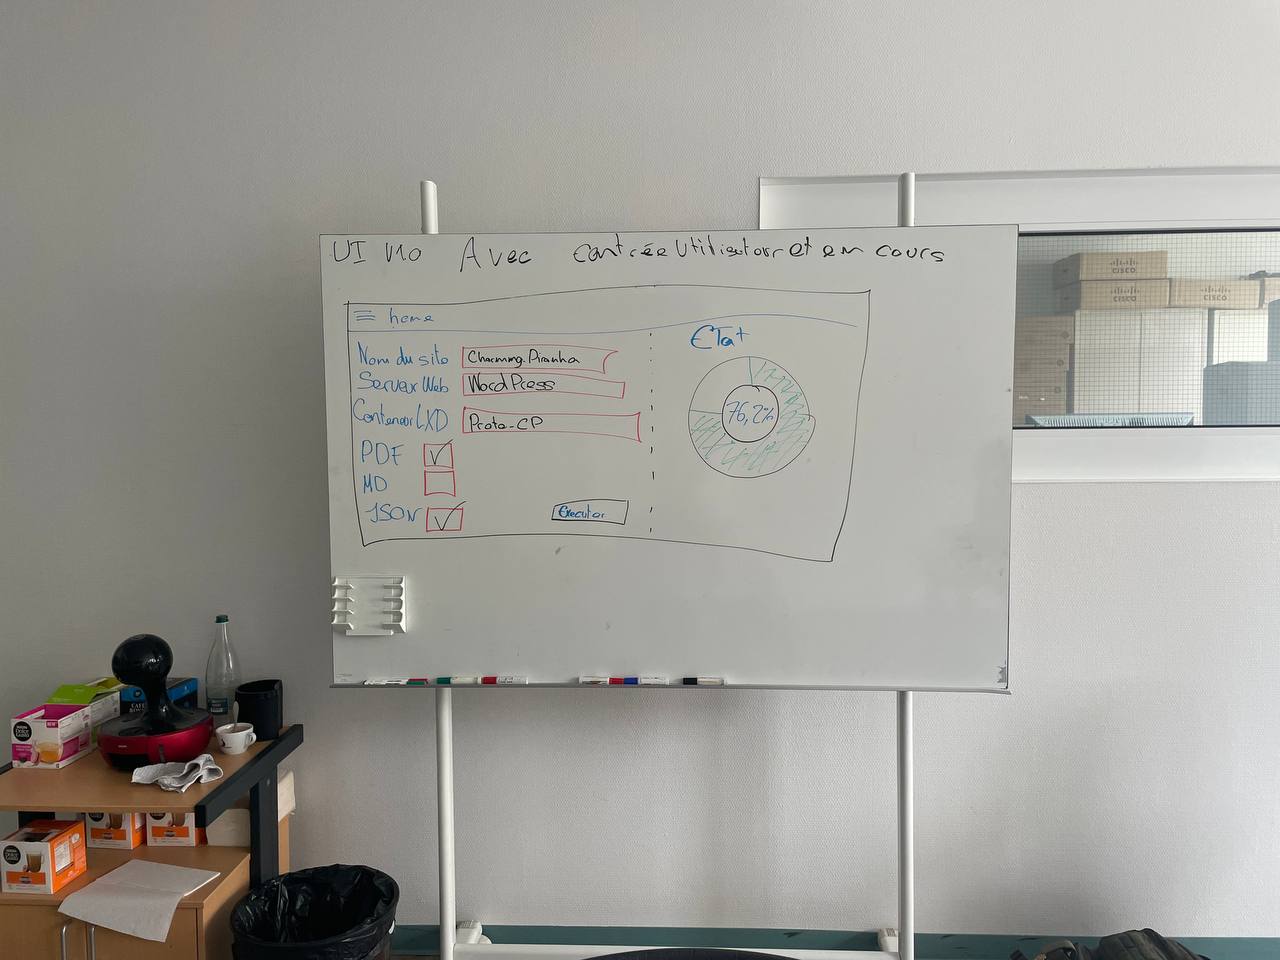 UI V10 Avec contrée Utilisateur et en cours
home
Nom du site Charming.Piranha
Serveur Web WordPress
Conteneur LXD Proto-CP
PDF
MD
JSON
Executer
ETat
76,2%
CISCO
CISCO
CISCO